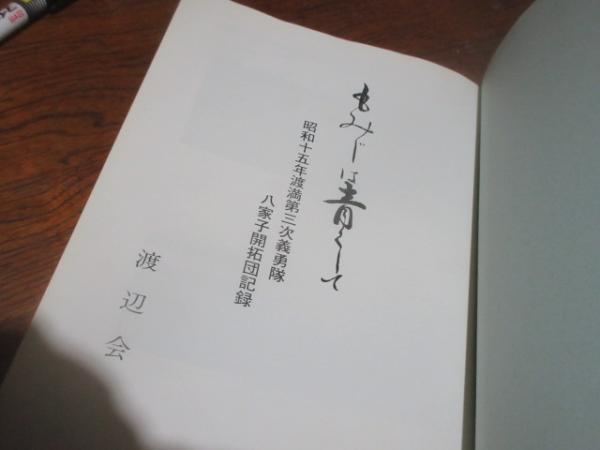 もみじは青くして
昭和十五年渡満第三次義勇隊
八家子開拓団記録
渡辺会